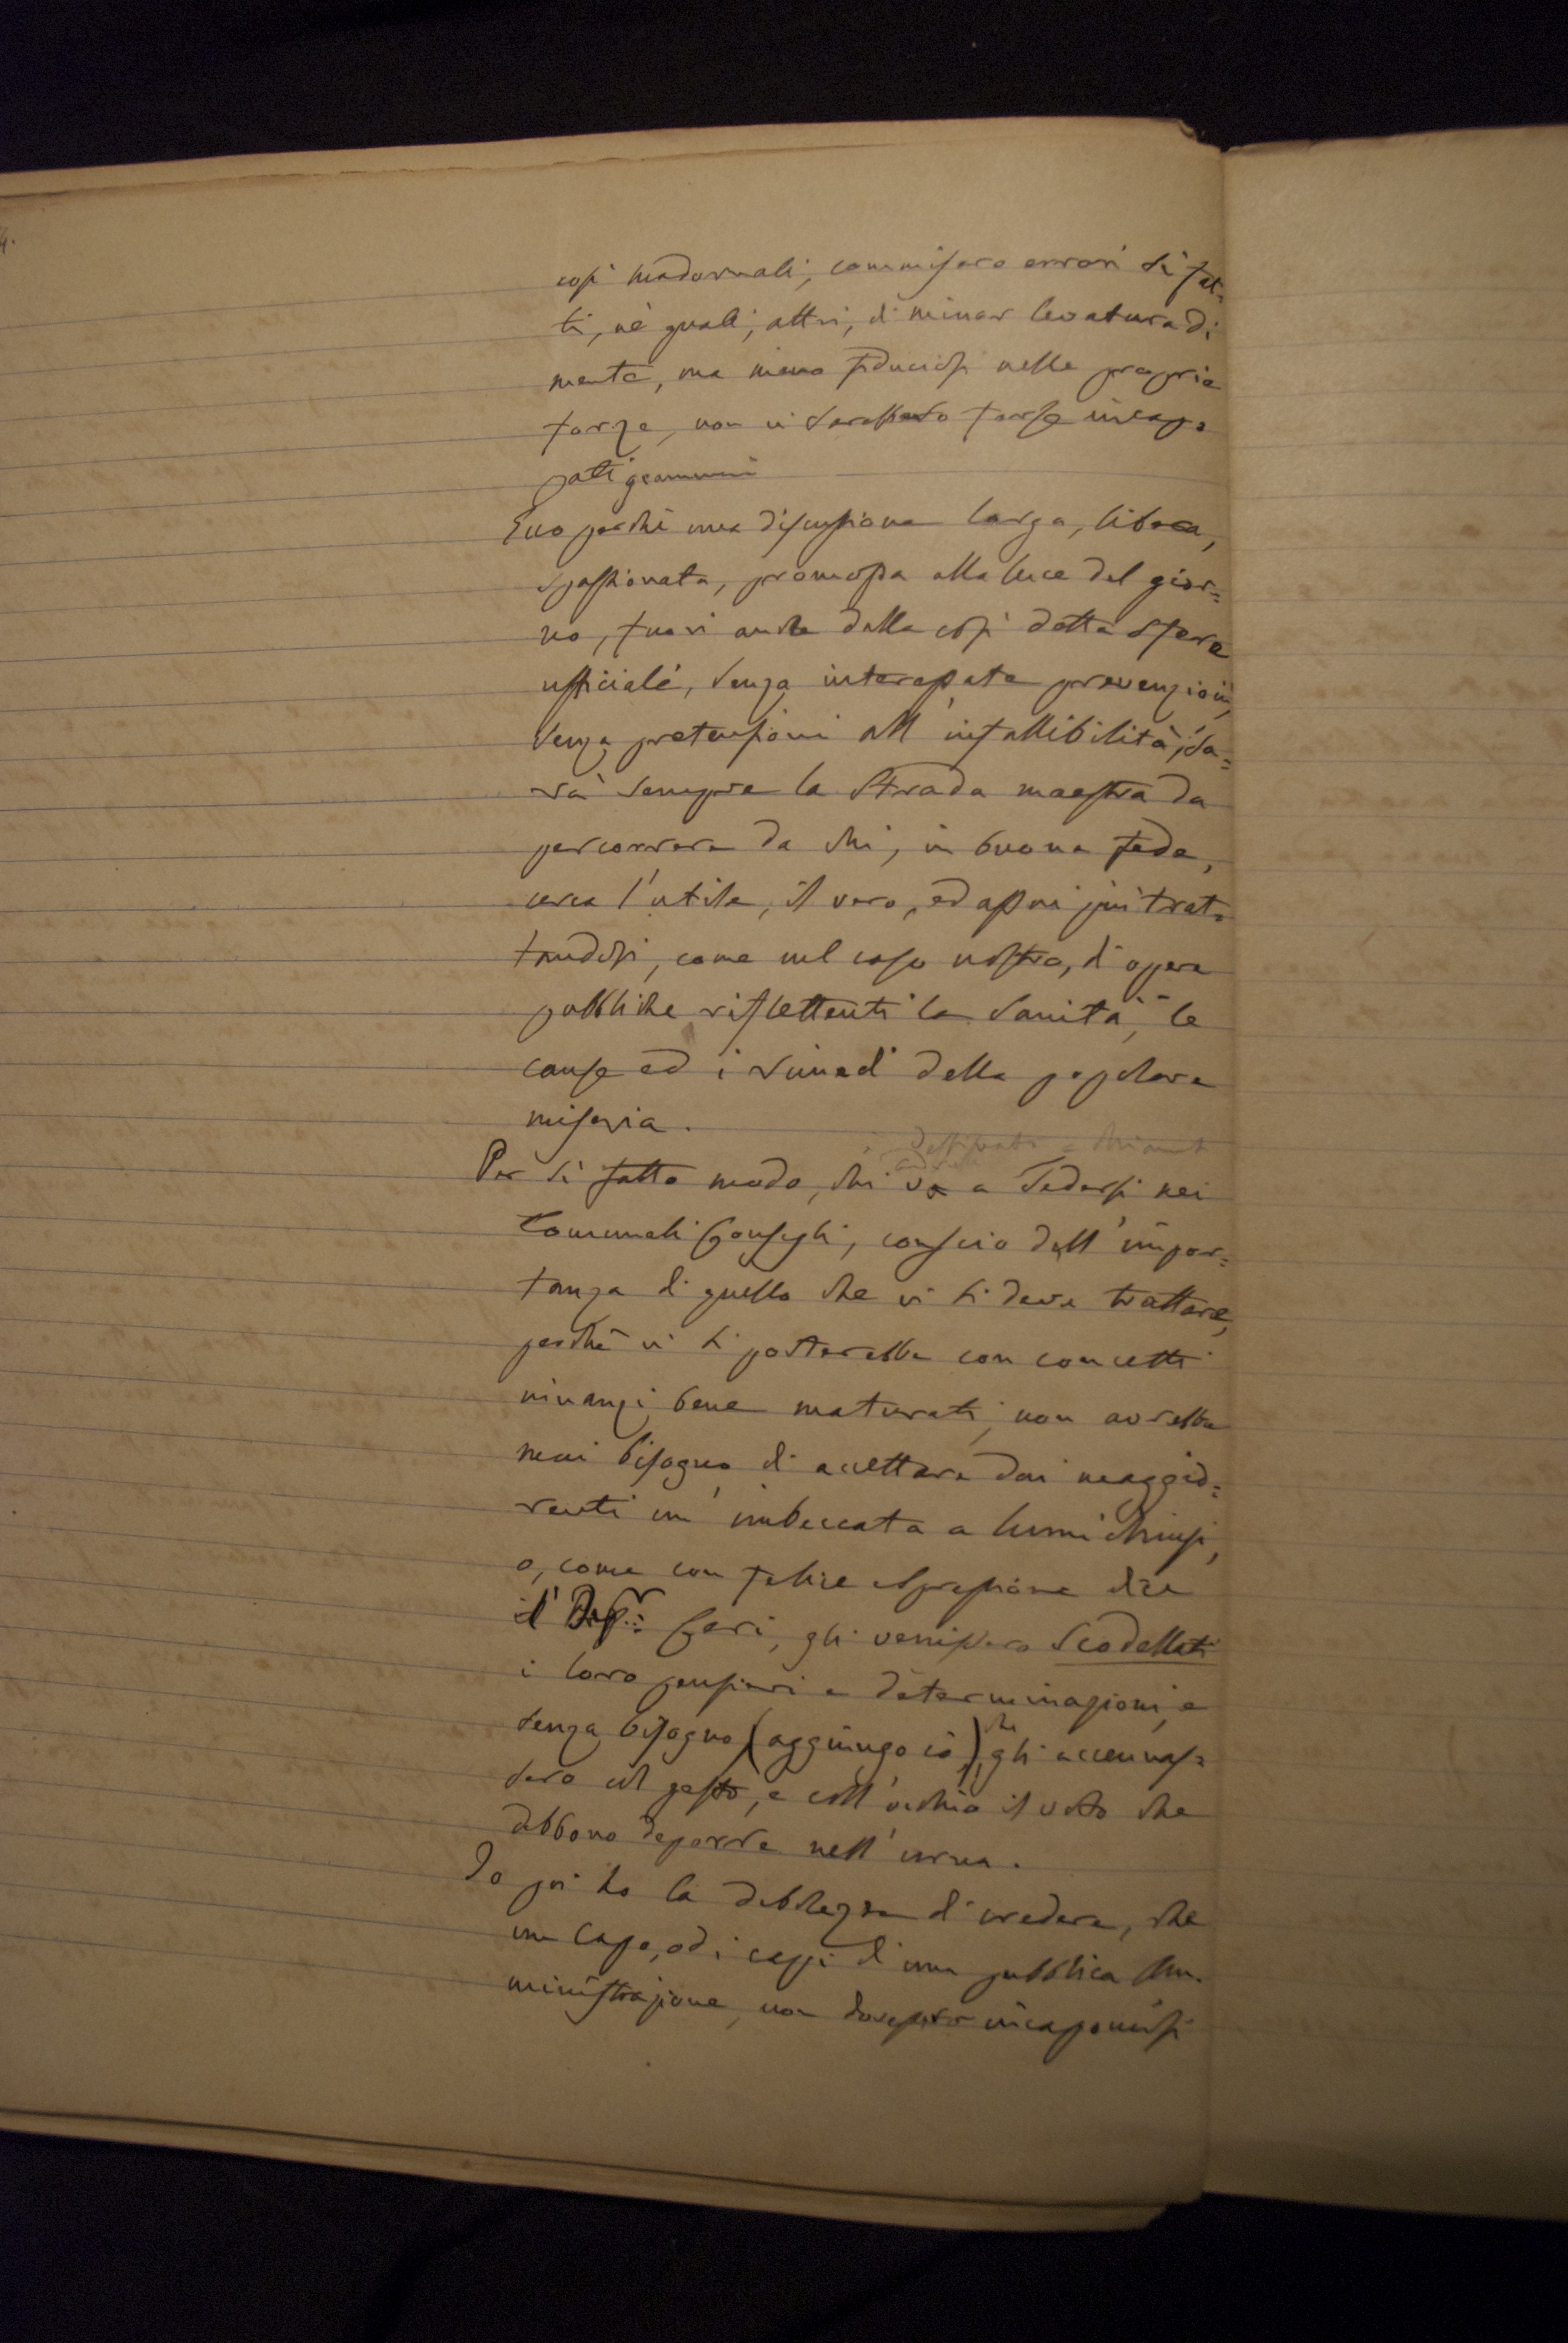 così madornali, commisero errori sì fat=
ti, nè quali, altri, di minor levatura di
mente, ma meno fiduciosi nelle proprie
forze, non vi sarebbero forse incap=
pati giammai
Ecco perchè una discussione larga, libera,
spassionata, promossa alla luce del gior=
no, fuori anche dalla così detta sfera
ufficiale, senza interessate prevenzioni,
senza pretensioni all'infallibilità, sa=
rà sempre la strada maestra da
percorrere da chi, in buona fede,
cerca l'utile, il vero, ed assai più trat=
tandosi, come nel caso nostro, di opere
pubbliche riflettenti la Sanità, le
cause ed i rimedi della popolare
miseria.
Per sì fatto modo, chi va a sedersi nei
Comunali Consigli, conscio dell'impor=
tanza di quello che vi si deve trattare,
perchè vi si porterebbe con concetti
innanzi bene maturati, non avrebbe
mai bisogno di accettare dai maggio=
renti un'imbeccata a lumi chiusi,
o, come con felice espressione dice
Geri, gli venissero scodellati
i loro pensieri e determinazioni, e
senza bisogno (aggiungo io), che gli accennas=
sero col gesto, e coll'occhio il voto che
debbono deporre nell'urna.
Io poi ho la debolezza di credere, che
un Capo, od i capi d'una pubblica Am=
ministrazione, non dovessero incaponirsi